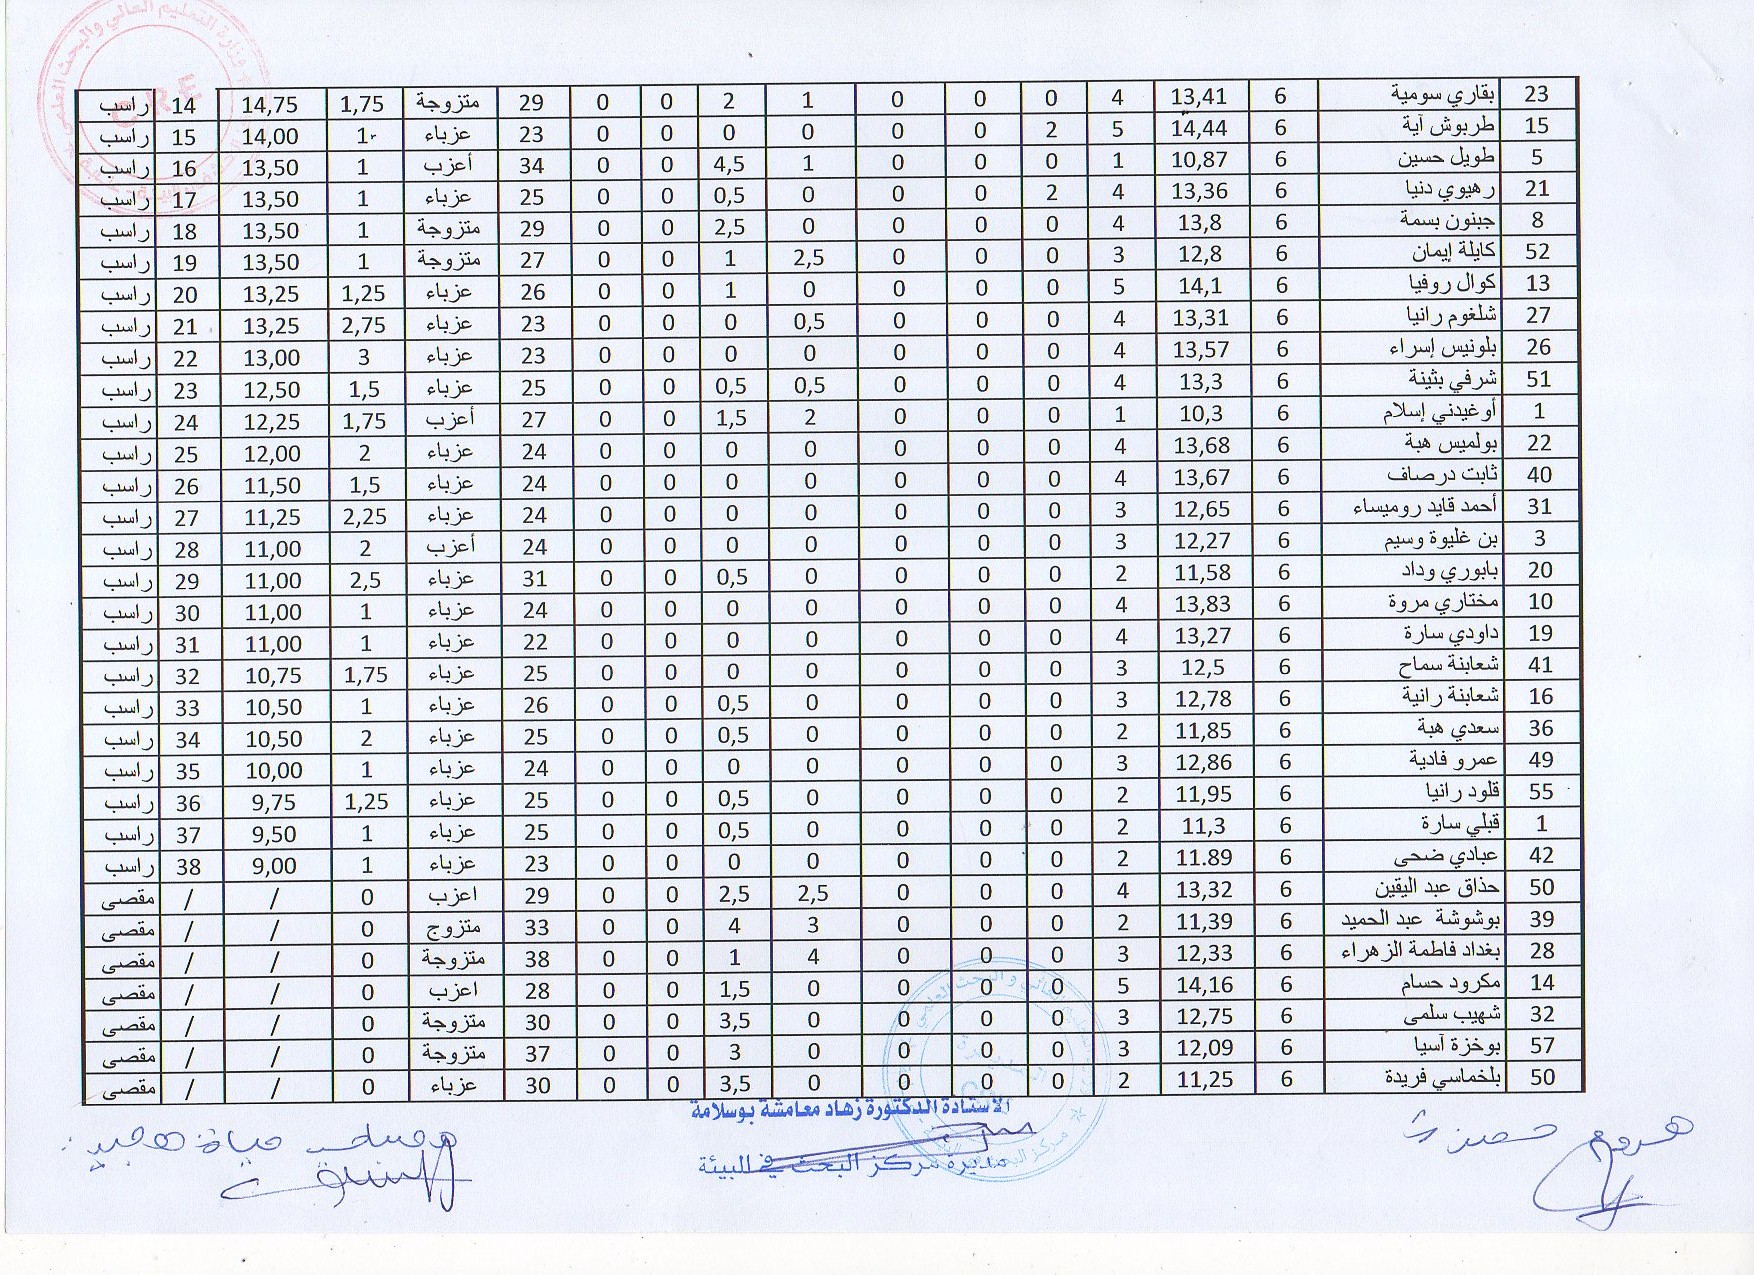 وزارة التعليم العالي والبحث العلمي
C.R.E
23 بقاري سومية 6 13,41 4 0 0 0 1 2 0 0 29 متزوجة 1,75 14,75 14 راسب
15 طربوش آية 6 14,44 5 2 0 0 0 0 0 0 23 عزباء 1 14,00 15 راسب
5 طويل حسين 6 10,87 1 0 0 0 1 4,5 0 0 34 أعزب 1 13,50 16 راسب
21 رهيوي دنيا 6 13,36 4 2 0 0 0 0,5 0 0 25 عزباء 1 13,50 17 راسب
8 جبنون بسمة 6 13,8 4 0 0 0 0 2,5 0 0 29 متزوجة 1 13,50 18 راسب
52 كايلة إيمان 6 12,8 3 0 0 0 2,5 1 0 0 27 متزوجة 1 13,50 19 راسب
13 كوال روفيا 6 14,1 5 0 0 0 0 1 0 0 26 عزباء 1,25 13,25 20 راسب
27 شلغوم رانيا 6 13,31 4 0 0 0 0,5 0 0 0 23 عزباء 2,75 13,25 21 راسب
26 بلونيس إسراء 6 13,57 4 0 0 0 0 0 0 0 23 عزباء 3 13,00 22 راسب
51 شرفي بثينة 6 13,3 4 0 0 0 0,5 0,5 0 0 25 عزباء 1,5 12,50 23 راسب
1 أوغيدني إسلام 6 10,3 1 0 0 0 2 1,5 0 0 27 أعزب 1,75 12,25 24 راسب
22 بولميس هبة 6 13,68 4 0 0 0 0 0 0 0 24 عزباء 2 12,00 25 راسب
40 ثابت درصاف 6 13,67 4 0 0 0 0 0 0 0 24 عزباء 1,5 11,50 26 راسب
31 أحمد قايد روميساء 6 12,65 3 0 0 0 0 0 0 0 24 عزباء 2,25 11,25 27 راسب
3 بن غليوة وسيم 6 12,27 3 0 0 0 0 0 0 0 24 أعزب 2 11,00 28 راسب
20 بابوري وداد 6 11,58 2 0 0 0 0 0,5 0 0 31 عزباء 2,5 11,00 29 راسب
10 مختاري مروة 6 13,83 4 0 0 0 0 0 0 0 24 عزباء 1 11,00 30 راسب
19 داودي سارة 6 13,27 4 0 0 0 0 0 0 0 22 عزباء 1 11,00 31 راسب
41 شعابنة سماح 6 12,5 3 0 0 0 0 0 0 0 25 عزباء 1,75 10,75 32 راسب
16 شعابنة رانية 6 12,78 3 0 0 0 0 0,5 0 0 26 عزباء 1 10,50 33 راسب
36 سعدي هبة 6 11,85 2 0 0 0 0 0,5 0 0 25 عزباء 2 10,50 34 راسب
49 عمرو فادية 6 12,86 3 0 0 0 0 0 0 0 24 عزباء 1 10,00 35 راسب
55 قلود رانيا 6 11,95 2 0 0 0 0 0,5 0 0 25 عزباء 1,25 9,75 36 راسب
1 قبلي سارة 6 11,3 2 0 0 0 0 0,5 0 0 25 عزباء 1 9,50 37 راسب
42 عبادي ضحى 6 11.89 2 0 0 0 0 0 0 0 23 عزباء 1 9,00 38 راسب
50 حذاق عبد اليقين 6 13,32 4 0 0 0 2,5 2,5 0 0 29 اعزب 0 / / مقصى
39 بوشوشة عبد الحميد 6 11,39 2 0 0 0 3 4 0 0 33 متزوج 0 / / مقصى
28 بغداد فاطمة الزهراء 6 12,33 3 0 0 0 4 1 0 0 38 متزوجة 0 / / مقصى
14 مكرود حسام 6 14,16 5 0 0 0 0 1,5 0 0 28 اعزب 0 / / مقصى
32 شهيب سلمى 6 12,75 3 0 0 0 0 3,5 0 0 30 متزوجة 0 / / مقصى
57 بوخزة آسيا 6 12,09 3 0 0 0 0 3 0 0 37 متزوجة 0 / / مقصى
50 بلخماسي فريدة 6 11,25 2 0 0 0 0 3,5 0 0 30 عزباء 0 / / مقصى
الاستاذة الدكتورة زهاد معامشة بوسلامة
مديرة مركز البحث في البيئة